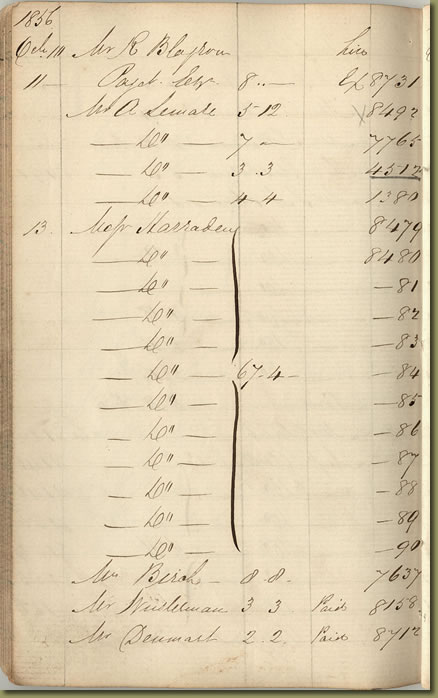 1856
Oct. 10 Mr R Blagrove hire
11 — 8 .. — Ex 8731
Mr A Lemare 5 12 8492
— Do" — 7 — 7765
— Do" — 3 . 3 4512
— Do" — 4 4 1380
13. Messr Marraden 8479
— Do" — 8480
— Do" — — 81
— Do" — — 82
— Do" — — 83
— Do" — 67 . 4 — — 84
— Do" — — 85
— Do" — — 86
— Do" — — 87
— Do" — — 88
— Do" — — 89
— Do" — — 90
Mr Birch — 8 . 8 . 7637
Mr 3 3 Paid 8158
Mr Denmart 2 . 2 . Paid 8712